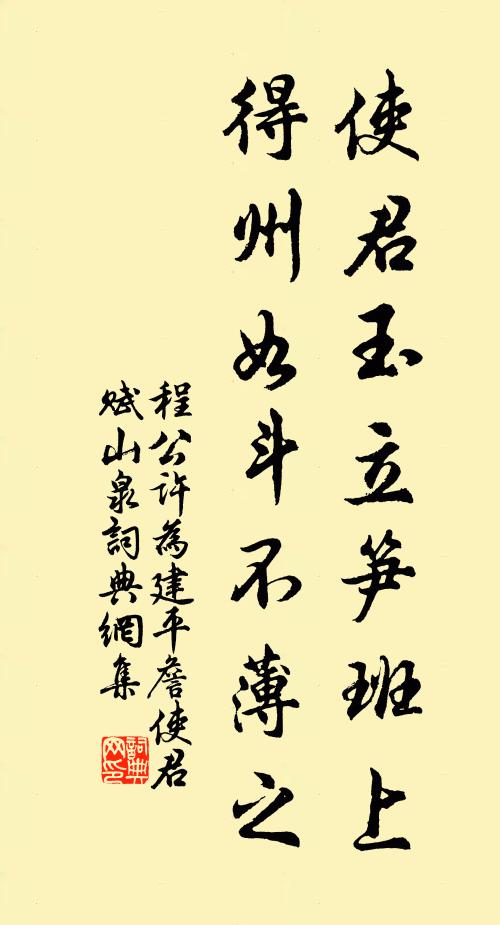 使君玉立笋班上
得州如斗不薄之
程公許為建平詹使君
賦山泉詞典網集
詞典網印